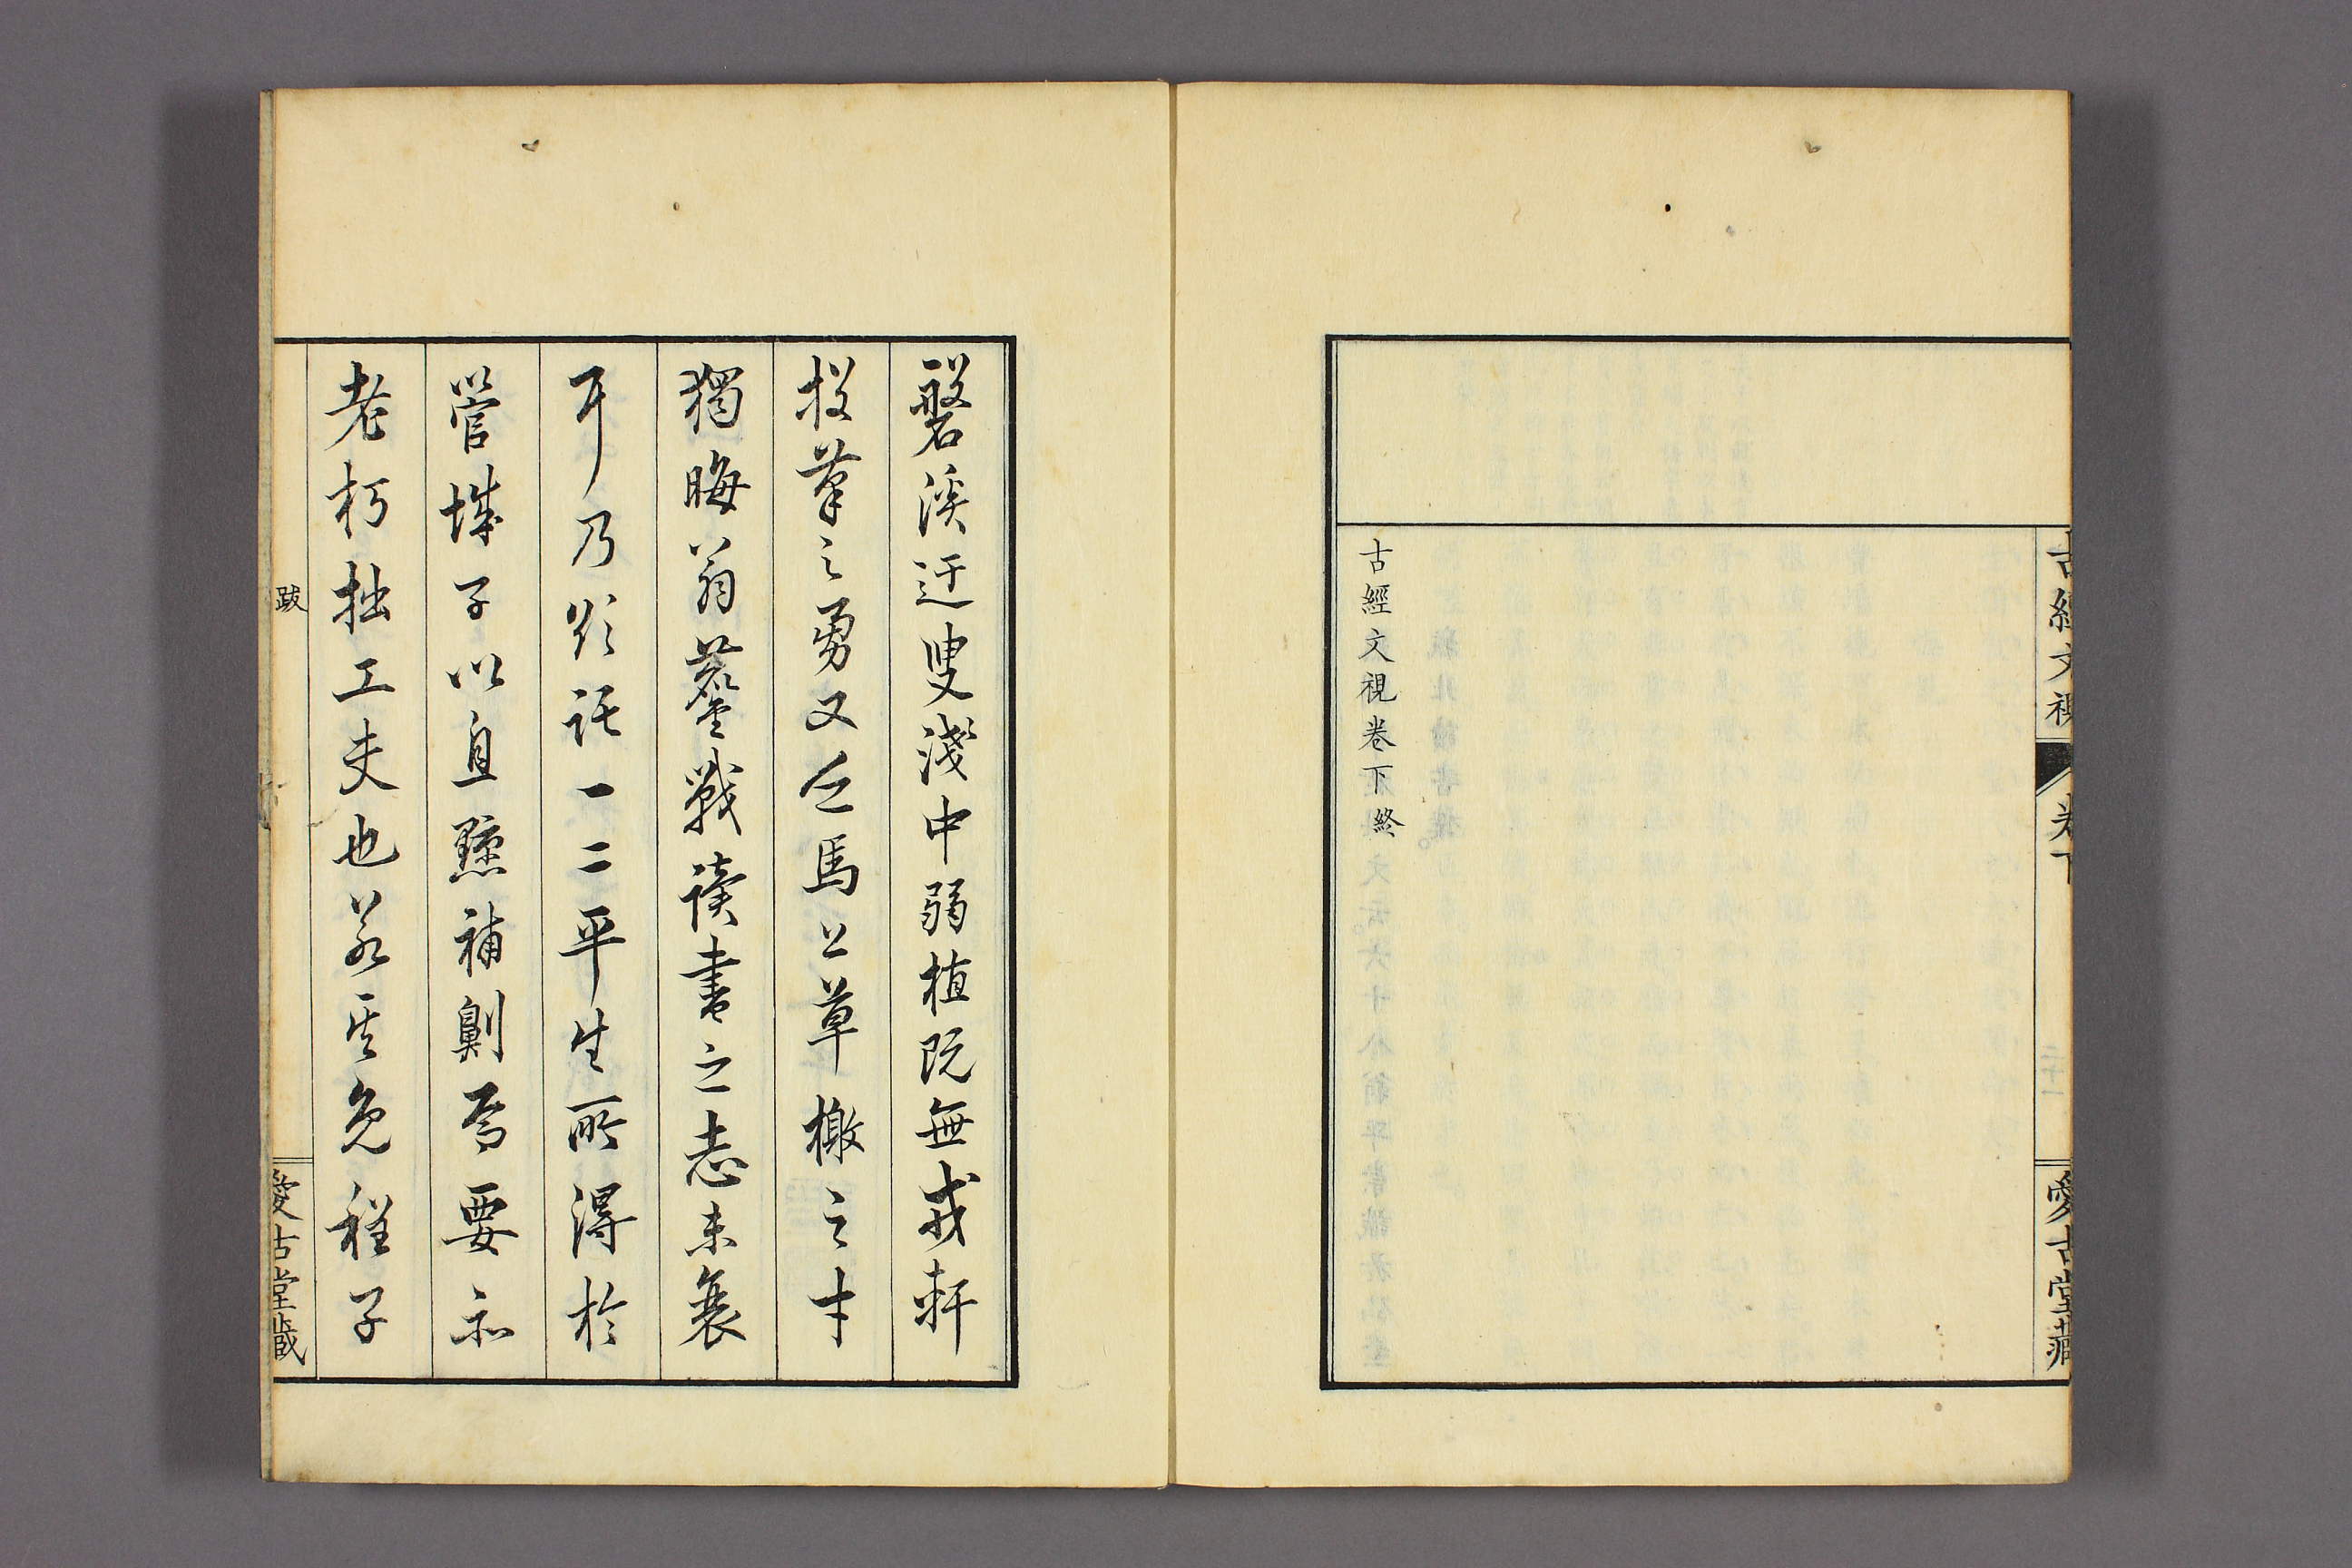 古經文視
卷下
愛古堂藏
古經文視卷下終
磐溪迂叟淺中弱植既無戎軒
投筆之勇又乏馬上草檄之才
獨晦翁鏖戰讀書之志未衰
耳乃跋託一二平生所得於
管城子以自黥補劓焉要示
老朽拙工夫也若其免程子
跋
愛古堂藏